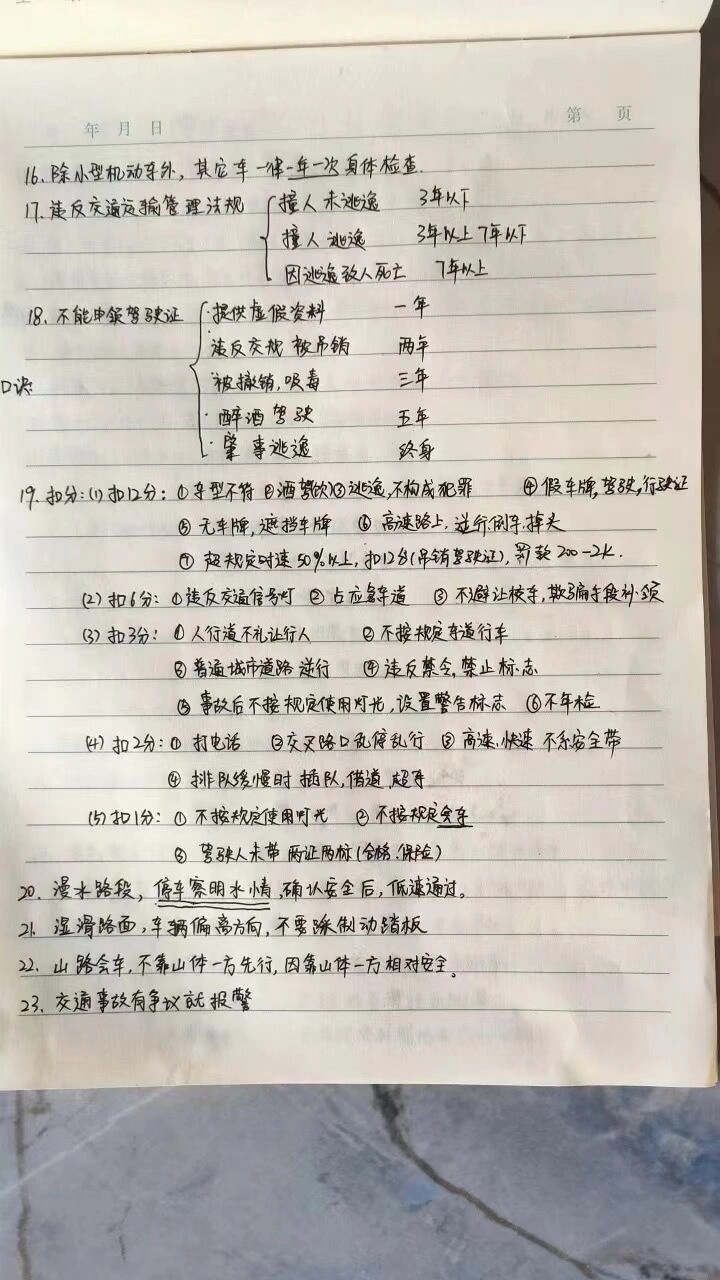 年 月 日 第 页
16.除小型机动车外，其它车一律一年一次身体检查.
17.违反交通运输管理法规 撞人未逃逸 3年以下
撞人逃逸 3年以上7年以下
因逃逸致人死亡 7年以上
18.不能申领驾驶证 ·提供虚假资料 一年
违反交规 被吊销 两年
口诀: 被撤销,吸毒 三年
·醉酒驾驶 五年
·肇事逃逸 终身
19.扣分:(1)扣12分: ①车型不符 ②酒驾(饮)③逃逸,不构成犯罪 ④假车牌,驾驶,行驶证
⑤无车牌,遮挡车牌 ⑥高速路上,逆行,倒车,掉头
⑦超规定时速50%以上,扣12分(吊销驾驶证),罚款200-2k.
(2)扣6分: ①违反交通信号灯 ②占应急车道 ③不避让校车,欺骗手段补领
(3)扣3分: ①人行道不礼让行人 ②不按规定车道行车
③普通城市道路逆行 ④违反禁令,禁止标志
⑤事故后不按规定使用灯光,设置警告标志 ⑥不年检
(4)扣2分: ①打电话 ②交叉路口乱停乱行 ③高速,快速 不系安全带
④排队缓慢时 插队,借道,超车
(5)扣1分: ①不按规定使用灯光 ②不按规定会车
③驾驶人未带两证两标(合格.保险)
20.漫水路段，停车察明水情,确认安全后,低速通过。
21.湿滑路面,车辆偏离方向,不要踩制动踏板
22.山路会车,不靠山体一方先行,因靠山体一方相对安全。
23.交通事故有争议就报警